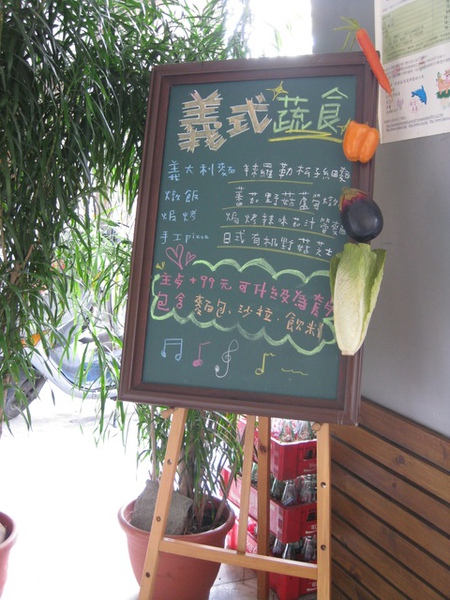 義式蔬食
義大利麵 袜羅勒松子細麵
燉飯 蕃茄野菇蘆筍燉
焗烤 焗烤辣味茄汁管麵
手工pizza 日式有机野菇芝士
主点+99元可升級為套
包含麵包、沙拉、飲料